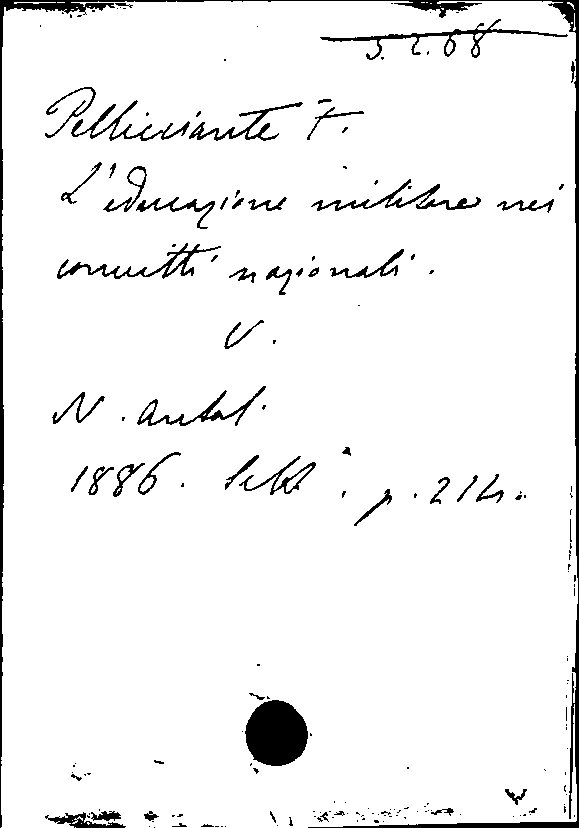 3.2.68
Pellicciante F.
L'educazione militare nei
convitti nazionali.
V.
N. Antol.
1886. Sett.e p. 214.